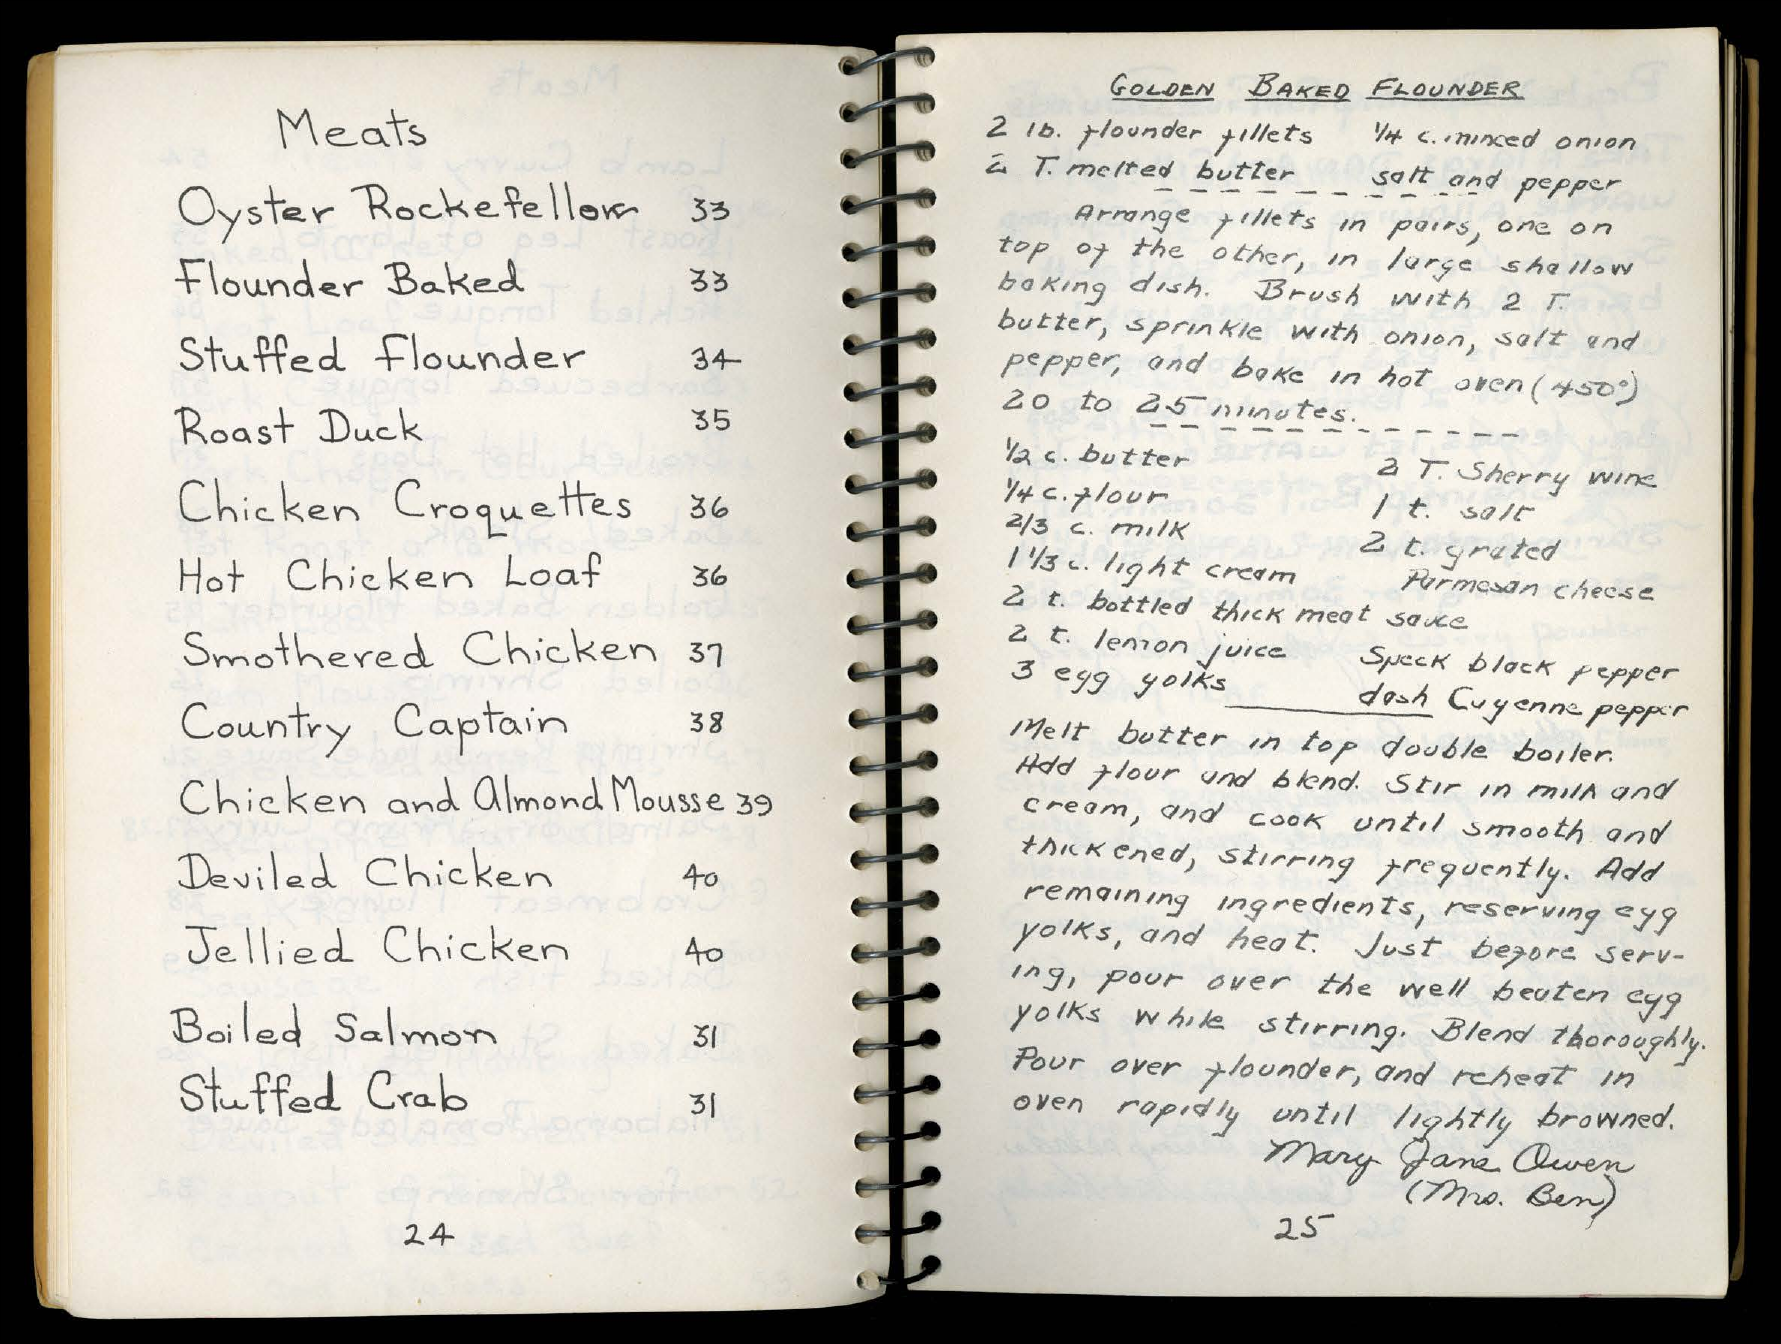 Meats
Oyster Rockefeller 33
Flounder Baked 33
Stuffed Flounder 34
Roast Duck 35
Chicken Croquettes 36
Hot Chicken Loaf 36
Smothered Chicken 37
Country Captain 38
Chicken and Almond Mousse 39
Deviled Chicken 40
Jellied Chicken 40
Boiled Salmon 31
Stuffed Crab 31
24
GOLDEN BAKED FLOUNDER
2 lb. flounder fillets 1/4 c. minced onion
2 T. melted butter salt and pepper
Arrange fillets in pairs, one on
top of the other, in large shallow
baking dish. Brush with 2 T.
butter, sprinkle with onion, salt and
pepper, and bake in hot oven (450°)
20 to 25 minutes.
1/2 c. butter 2 T. Sherry wine
1/4 c. flour 1 t. salt
2/3 c. milk 2 t. grated
1 1/3 c. light cream Parmesan cheese
2 t. bottled thick meat sauce
2 t. lemon juice Speck black pepper
3 egg yolks dash Cayenne pepper
Melt butter in top double boiler.
Add flour and blend. Stir in milk and
cream, and cook until smooth and
thickened, stirring frequently. Add
remaining ingredients, reserving egg
yolks, and heat. Just before serv-
ing, pour over the well beaten egg
yolks while stirring. Blend thoroughly.
Pour over flounder, and reheat in
oven rapidly until lightly browned.
Mary Jane Owen
(Mrs. Ben)
25